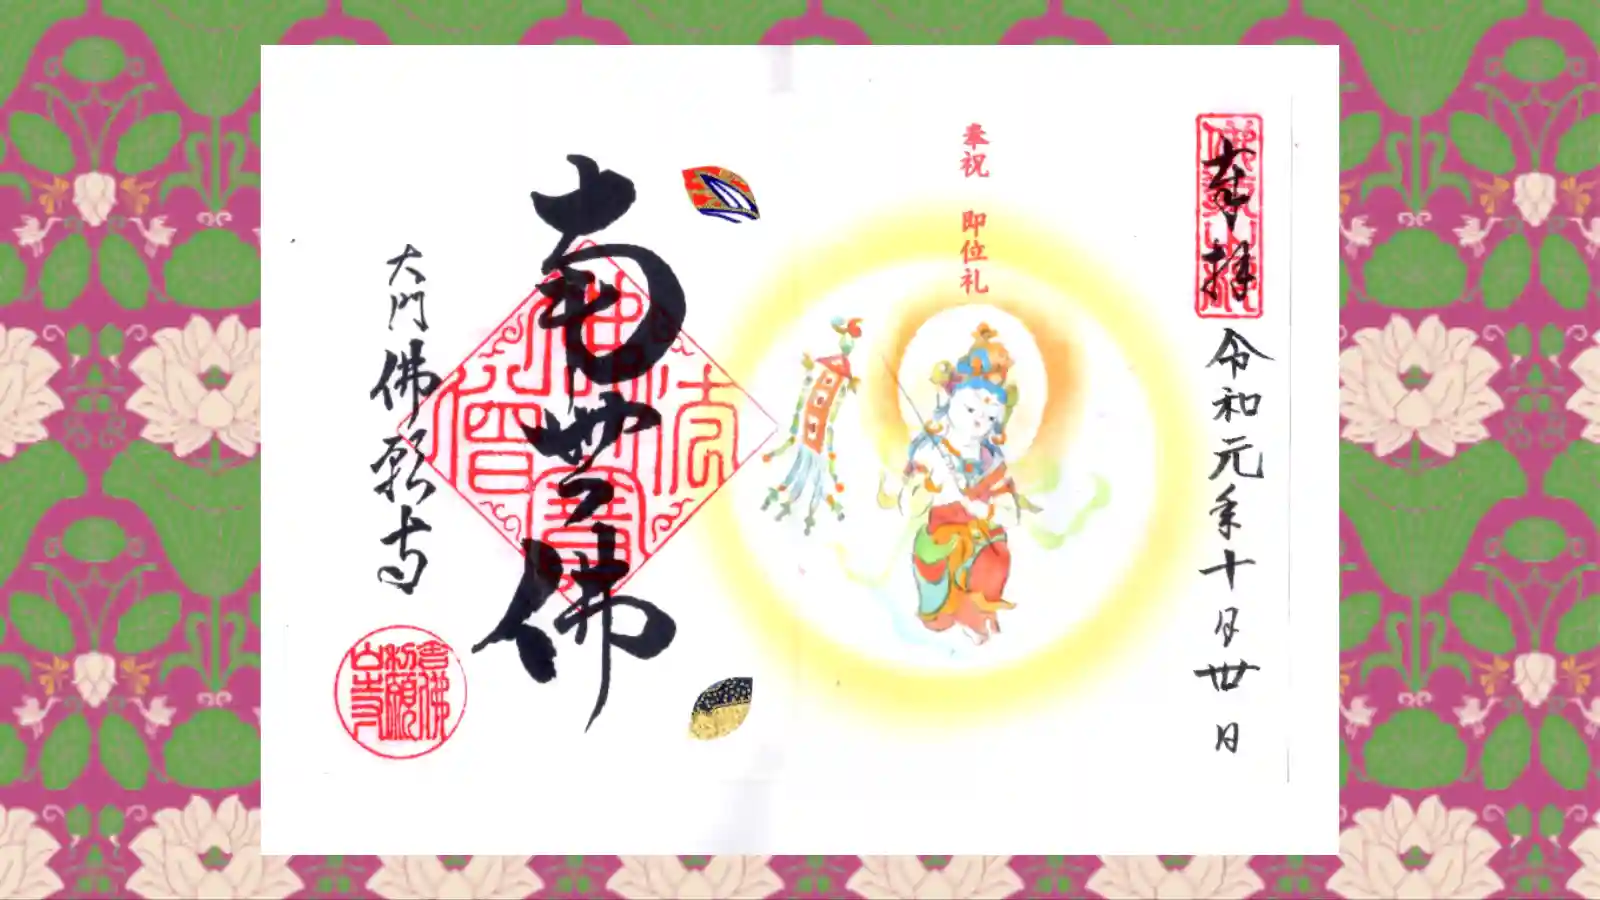 奉拝
令和元年十月丗日
奉祝 即位礼
南無佛
大門佛願寺